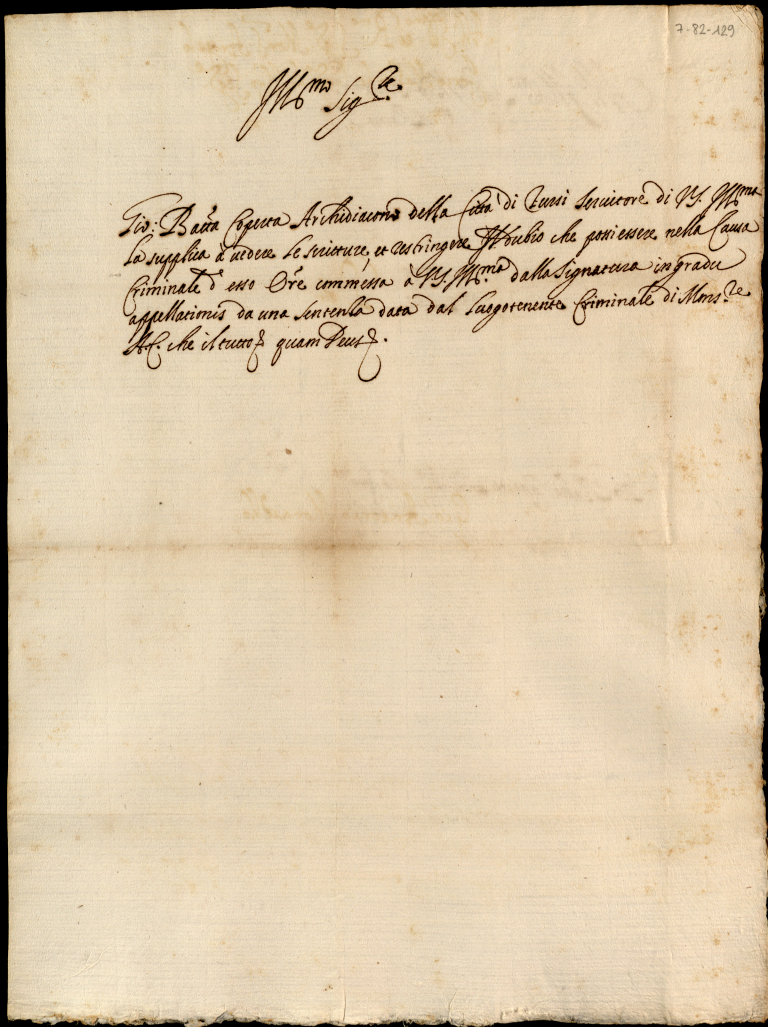 7-82-129
Ill.mo Sig.re
Gio: Batta Coperta Archidiacono della Città di Tursi Servitore di V.S. Ill.ma
la supplica à vedere le scritture, et restringere Il dubio che possi essere nella Causa
Criminale d'esso Ore commessa à V.S. Ill.ma dalla Signatura in gradu
appellationis da una sentenza data dal Luogotenente Criminale di Mons.re
A.C. che il tutto quam Deus